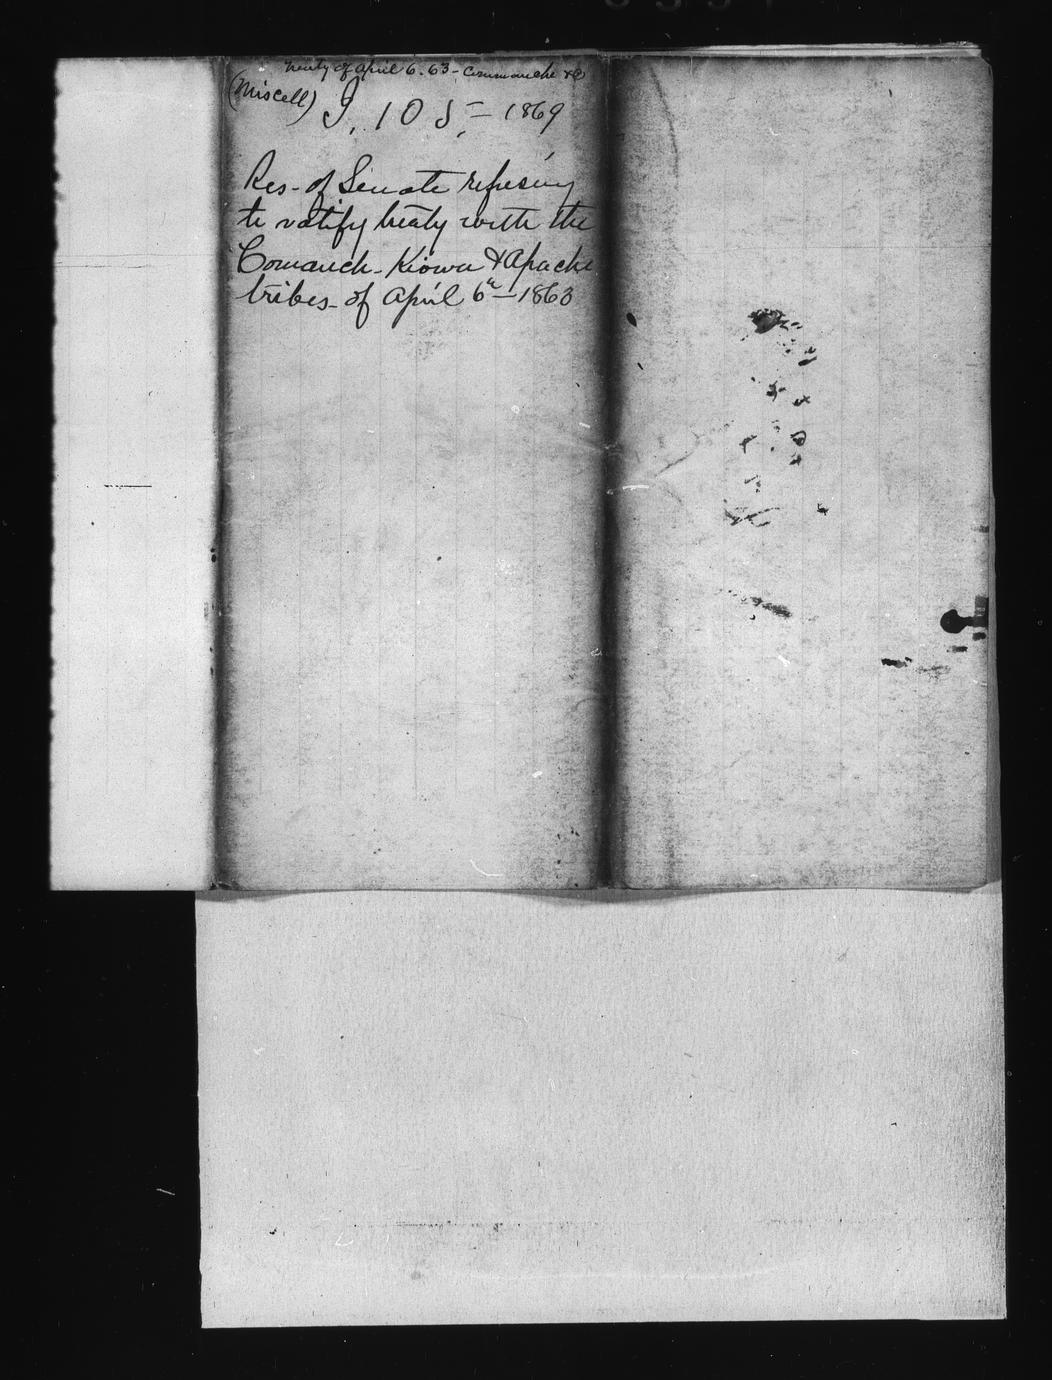 Treaty of April 6. 63 - Commanche &c
(Miscell) I, 105, = 1869
Res- of Senate refusing
to ratify treaty with the
Comanch- Kiowa & Apache
tribes- of April 6th - 1863